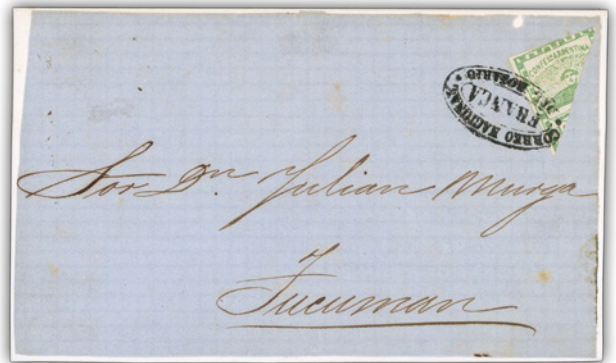 CONFEON ARGENTINA
CORREO NACIONAL
FRANCA
DEL ROSARIO
Sor Dn. Julian Murga
Tucuman